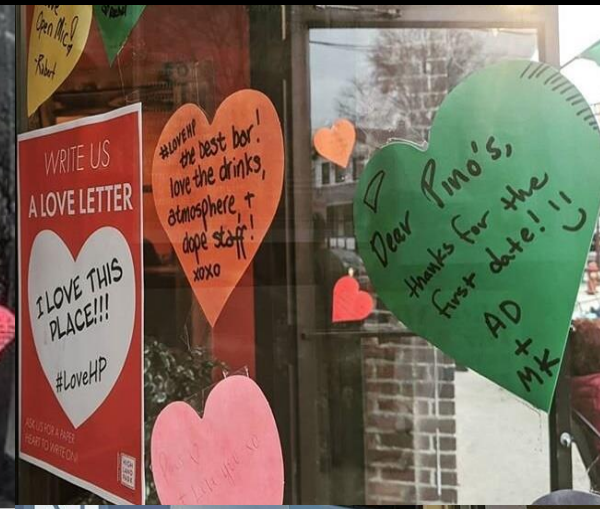 Open Mic!
-Robert
WRITE US
A LOVE LETTER
I LOVE THIS
PLACE!!!
#LoveHP
ASK US FOR A PAPER
HEART TO WRITE ON!
HIGH
LAND
PARK
#LOVEHP
the best bar!
love the drinks,
atmosphere, +
dope staff!
xoxo
Dear Pino's,
thanks for the
first date! :)
AD
+
MK